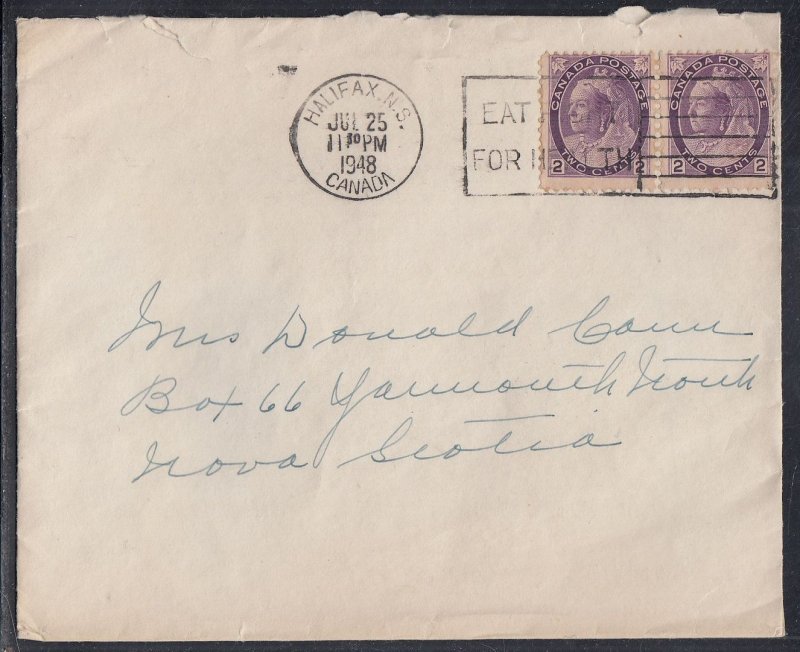 HALIFAX. N.S.
JUL 25
11 30 PM
1948
CANADA
EAT
FOR TH
CANADA POSTAGE
2 TWO CENTS 2
CANADA POSTAGE
2 TWO CENTS 2
Mrs Donald Cann
Box 66 Yarmouth North
Nova Scotia